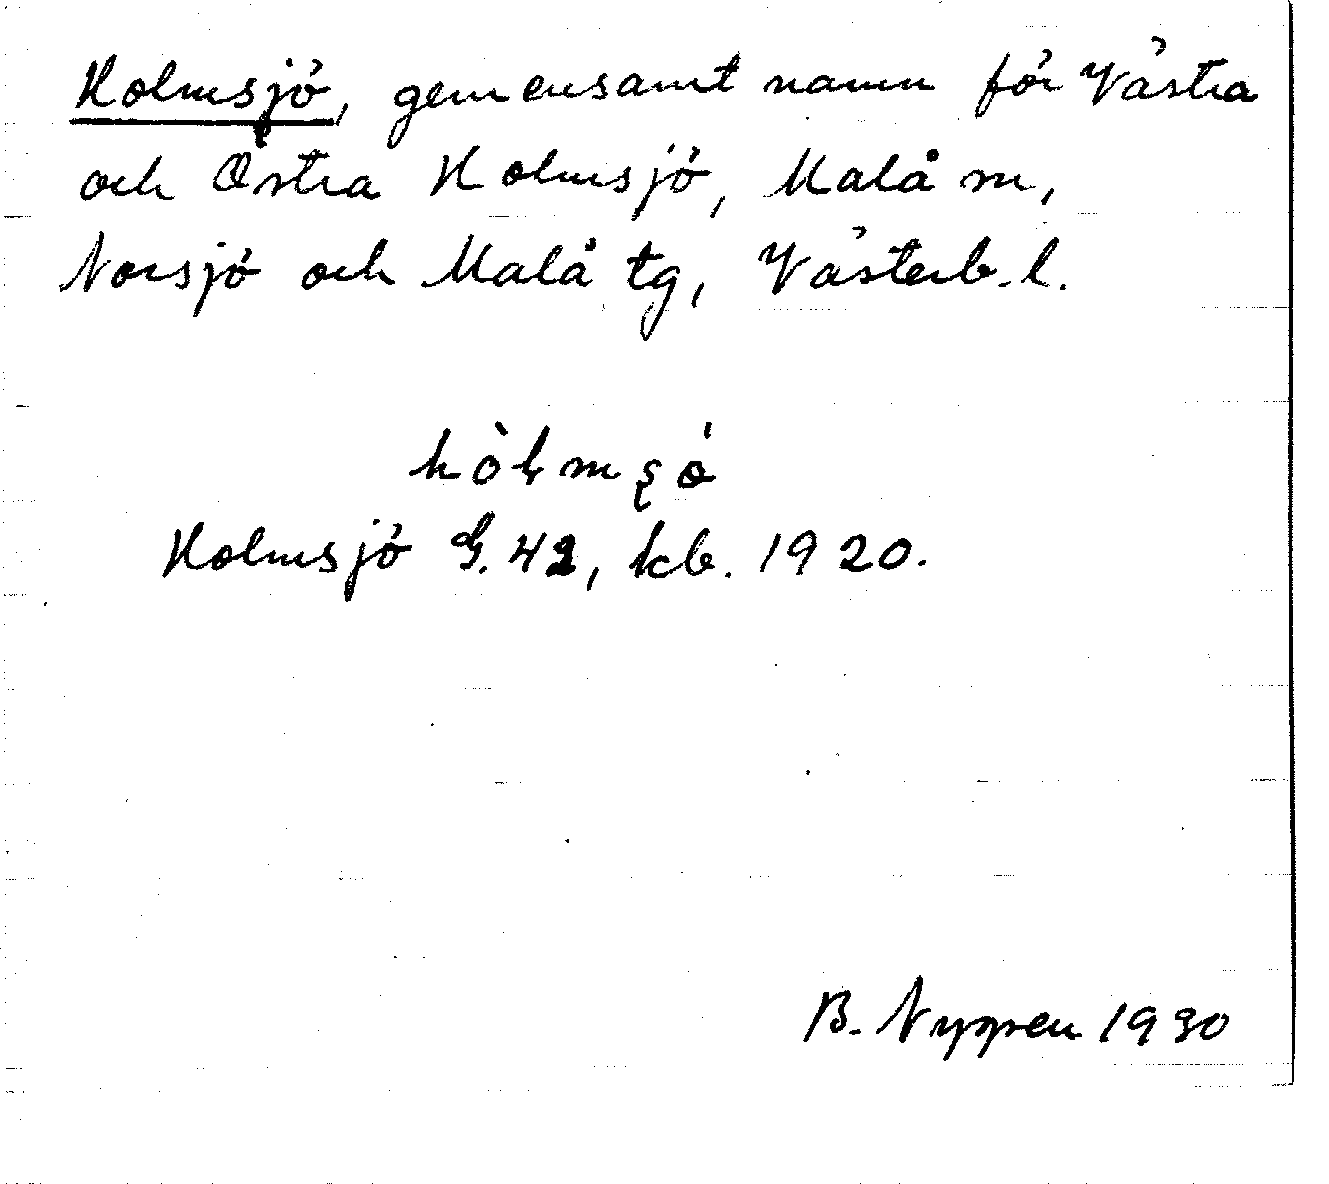 Holmsjö, gemensamt namn för Västra
och Östra Holmsjö, Malå sn,
Norsjö och Malå tg, Västerb. l.
Holmsjö G. 42, kb. 1920.
B. Nygren 1930